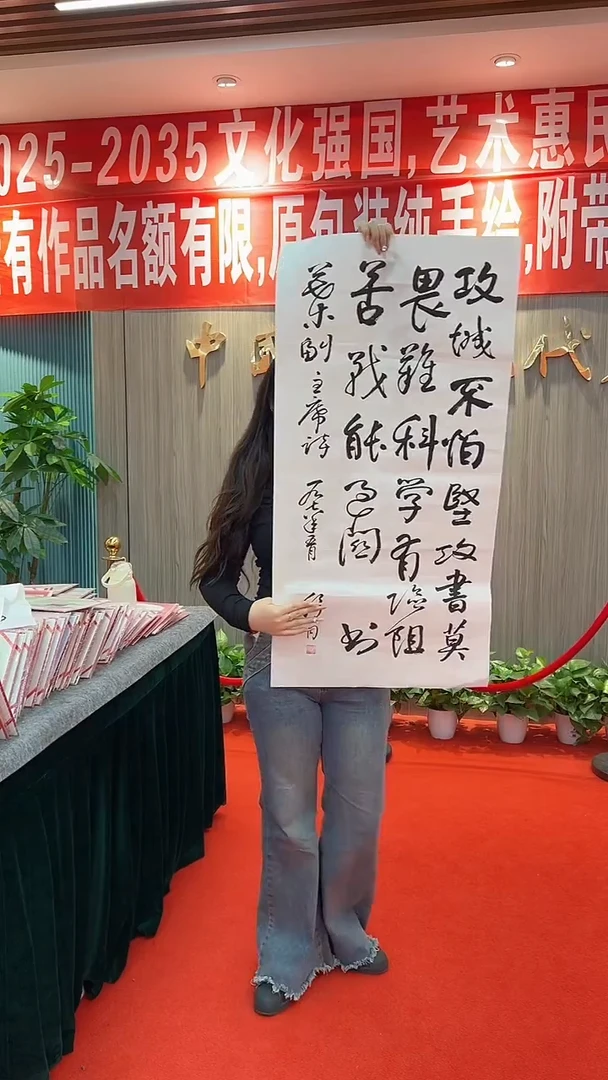 025-2035文化强国,艺术惠民
有作品名额有限,原包装纯手绘,附带
中国
代
攻城不怕坚攻书莫
畏难科学有险阻
苦战能过关 
叶副主席诗